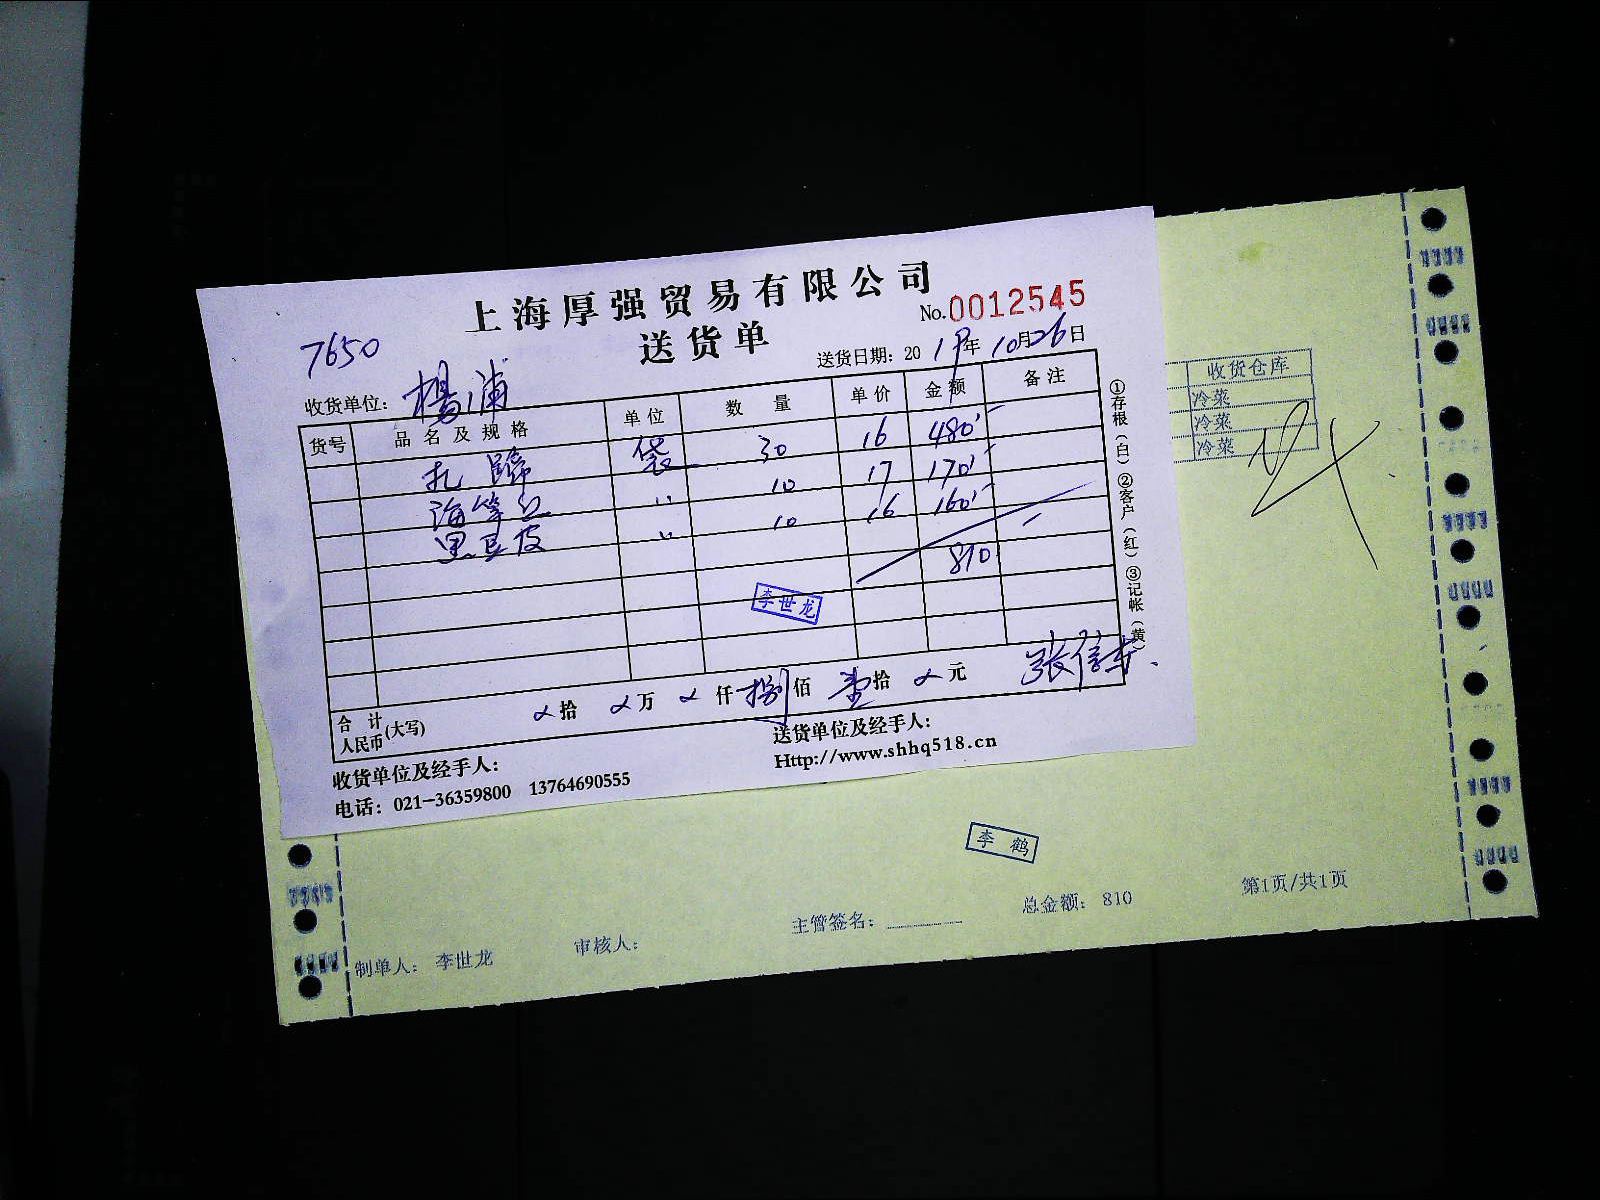 上海厚强贸易有限公司
送货单
No.0012545
7650
送货日期：2019年10月26日
收货单位：杨浦
货号 品名及规格 单位 数量 单价 金额 备注
扎蹄 袋 30 16 480
海笋丝 〃 10 17 170
黑豆皮 〃 10 16 160
810
李世龙
合计人民币(大写) 拾 万 仟 捌佰 壹拾 元
张信车
收货单位及经手人：
送货单位及经手人：
电话：021-36359800 13764690555
Http://www.shhq518.cn
①存根（白）②客户（红）③记帐（黄）
收货仓库
冷菜
冷菜
冷菜
李鹤
制单人：李世龙 审核人： 主管签名： 总金额：810 第1页/共1页